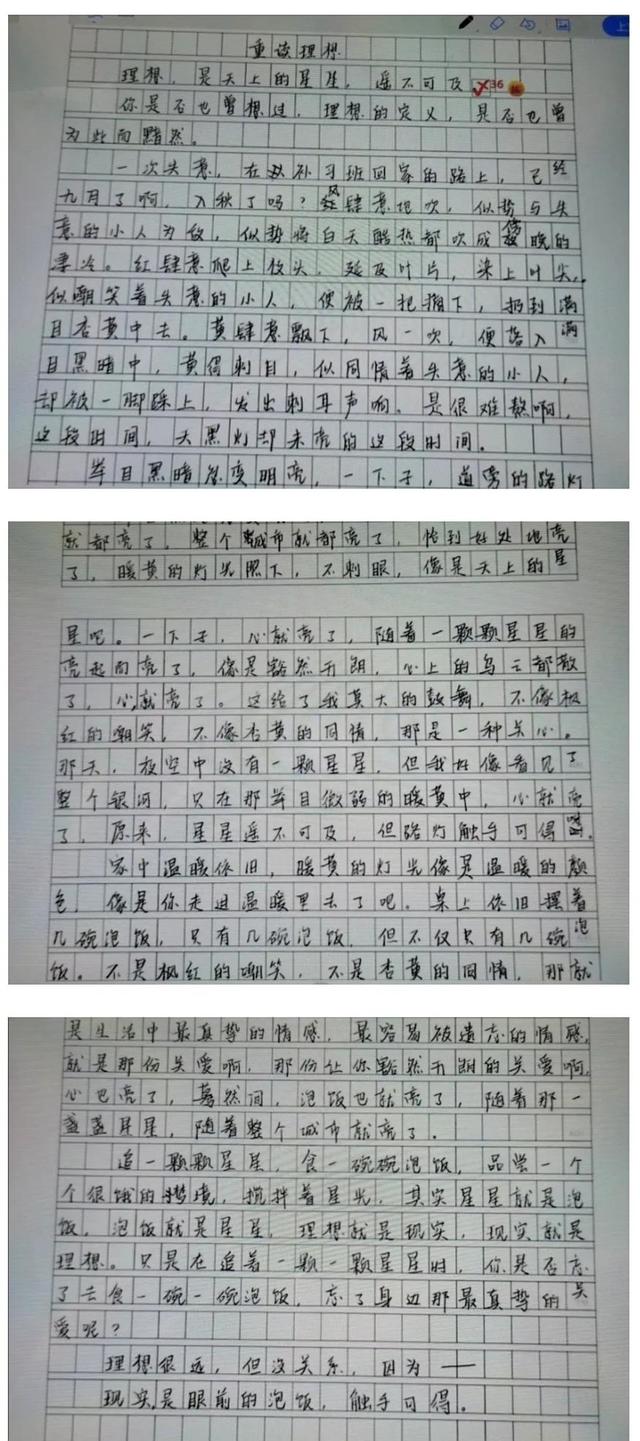 重读理想
理想，是天上的星星，遥不可及
36
你是否也曾想过，理想的定义，是否也曾
为此而黯然。
一次失意，在从补习班回家的路上，已经
九月了啊，入秋了吗？风肆意地吹，似势与失
意的小人为敌，似势将白天酷热都吹成傍晚的
凄冷。红肆意爬上枝头，延及叶片，染上叶尖，
似嘲笑着失意的小人，便被一把摘下，扔到满
目杏黄中去。黄肆意飘下，风一吹，便落入满
目黑暗中，黄得刺目，似同情着失意的小人，
却被一脚踩上，发出刺耳声响。是很难熬啊，
这段时间，天黑灯却未亮的这段时间。
举目黑暗忽变明亮，一下子，道旁的路灯
就都亮了，整个城市就都亮了，恰到好处地亮
了，暖黄的灯光照下，不刺眼，像是天上的星
星吧。一下子，心就亮了，随着一颗颗星星的
亮起而亮了，像是豁然开朗，心上的乌云都散
了，心就亮了。这给了我莫大的鼓舞，不像枫
红的嘲笑，不像杏黄的同情，那是一种关心。
那天，夜空中没有一颗星星，但我好像看见了
整个银河，只在那举目微弱的暖黄中，心就亮
了，原来，星星遥不可及，但路灯触手可得
家中温暖依旧，暖黄的灯光像是温暖的颜
色，像是你走进温暖里去了吧。桌上依旧摆着
几碗泡饭，只有几碗泡饭，但不仅只有几碗泡
饭。不是枫红的嘲笑，不是杏黄的同情，那就
是生活中最真挚的情感，最容易被遗忘的情感，
就是那份关爱啊，那份让你豁然开朗的关爱啊，
心也亮了，蓦然间，泡饭也就亮了，随着那一
盏盏星星，随着整个城市就亮了。
追一颗颗星星，食一碗碗泡饭，品尝一个
个很饿的梦境，搅拌着星光，其实星星就是泡
饭，泡饭就是星星，理想就是现实，现实就是
理想。只是在追着一颗一颗星星时，你是否忘
了去食一碗一碗泡饭，忘了身边那最真挚的关
爱呢？
理想很远，但没关系，因为——
现实是眼前的泡饭，触手可得。